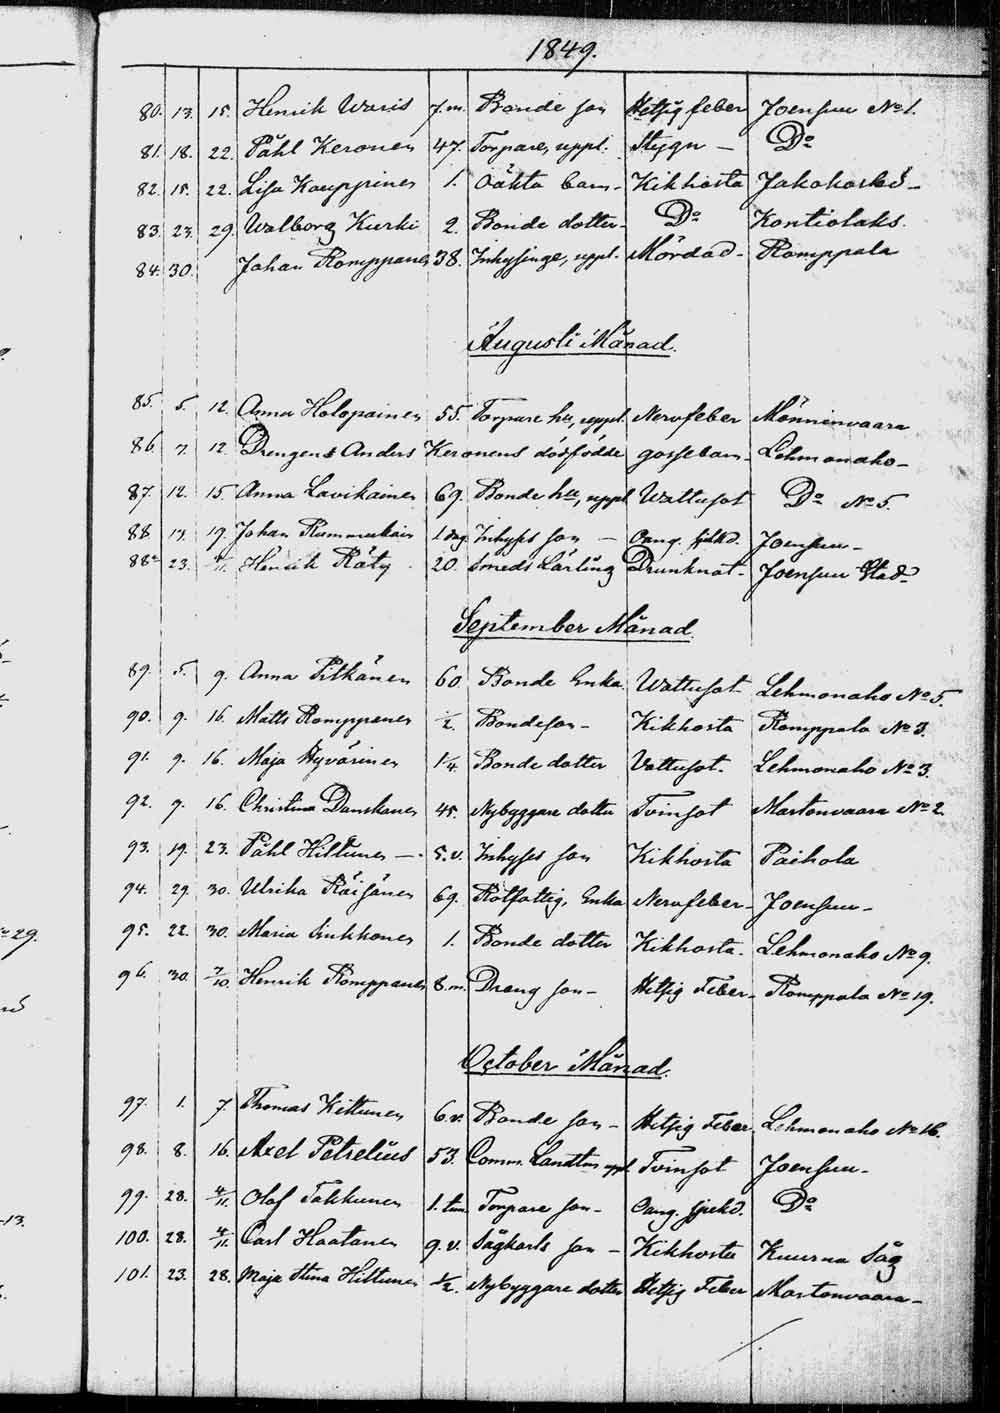 1849.
80. 13. 15. Henrik Waris 7.m. Bonde son Hetsig feber Joensuu No 1.
81. 18. 22. Påhl Keronen 47. Torpare, uppl. Stygn — Do
82. 15. 22. Lisa Kauppinen 1. Oäkta barn - Kikhosta Jakokoski -
83. 23. 29. Walborg Kurki 2. Bonde dotter - Do Kontiolaks.
84. 30. Johan Romppanen 38. Inhysinge, uppl. Mördad - Romppala
Augusti Månad.
85. 5. 12. Anna Holopainen 55. Torpare hu, uppl. Nervfeber Mönninvaara
86. 7. 12. Drengens Anders Keronens dödfödde gossebarn - Lehmonaho -
87. 12. 15. Anna Lavikainen 69. Bonde hu, uppl. Wattusot Do No 5.
88. 17. 19. Johan Rummukain 1 dag Inhyses son — Oang. sjukd. Joensuu -
88a 23. 4/11. Henrik Räty 20. Smeds Lärling Drunknat - Joensuu Stad -
September Månad.
89. 5. 9. Anna Pitkänen 60. Bonde Enka Wattusot Lehmonaho No 5.
90. 9. 16. Matts Romppanen 1/2. Bondeson - Kikhosta Romppala No 3.
91. 9. 16. Maja Hyvärinen 1/4. Bonde dotter Vattusot. Lehmonaho No 3.
92. 9. 16. Christina Danskanen 45. Nybyggare dotter Tvinsot Martonvaara No 2.
93. 19. 23. Påhl Hiltunen — 5.v. Inhyses son Kikhosta Paihola
94. 29. 30. Ulrika Räisänen 69. Rotfattig, Enka Nervfeber - Joensuu -
95. 22. 30. Maria Sinkkonen 1. Bonde dotter Kikhosta. Lehmonaho No 9.
96. 30. 7/10. Henrik Romppanen 8.m. Dreng son - Hetsig Feber - Romppala No 19.
October Månad.
97. 1. 7. Thomas Kittunen 6.v. Bonde son - Hetsig Feber. Lehmonaho No 16.
98. 8. 16. Axel Petrelius 53. Comm. Landtm. uppl. Tvinsot Joensuu -
99. 28. 4/11. Olof Takkunen 1. tim. Torpare son - Oang. sjukd. Do
100. 28. 4/11. Carl Haatanen 9.v. Sågkarls son - Kikhosta Kuurna Såg
101. 23. 28. Maja Stina Hiltunen 1/2. Nybyggare dotter Hetsig Feber Martonvaara -
No 29.
-13.